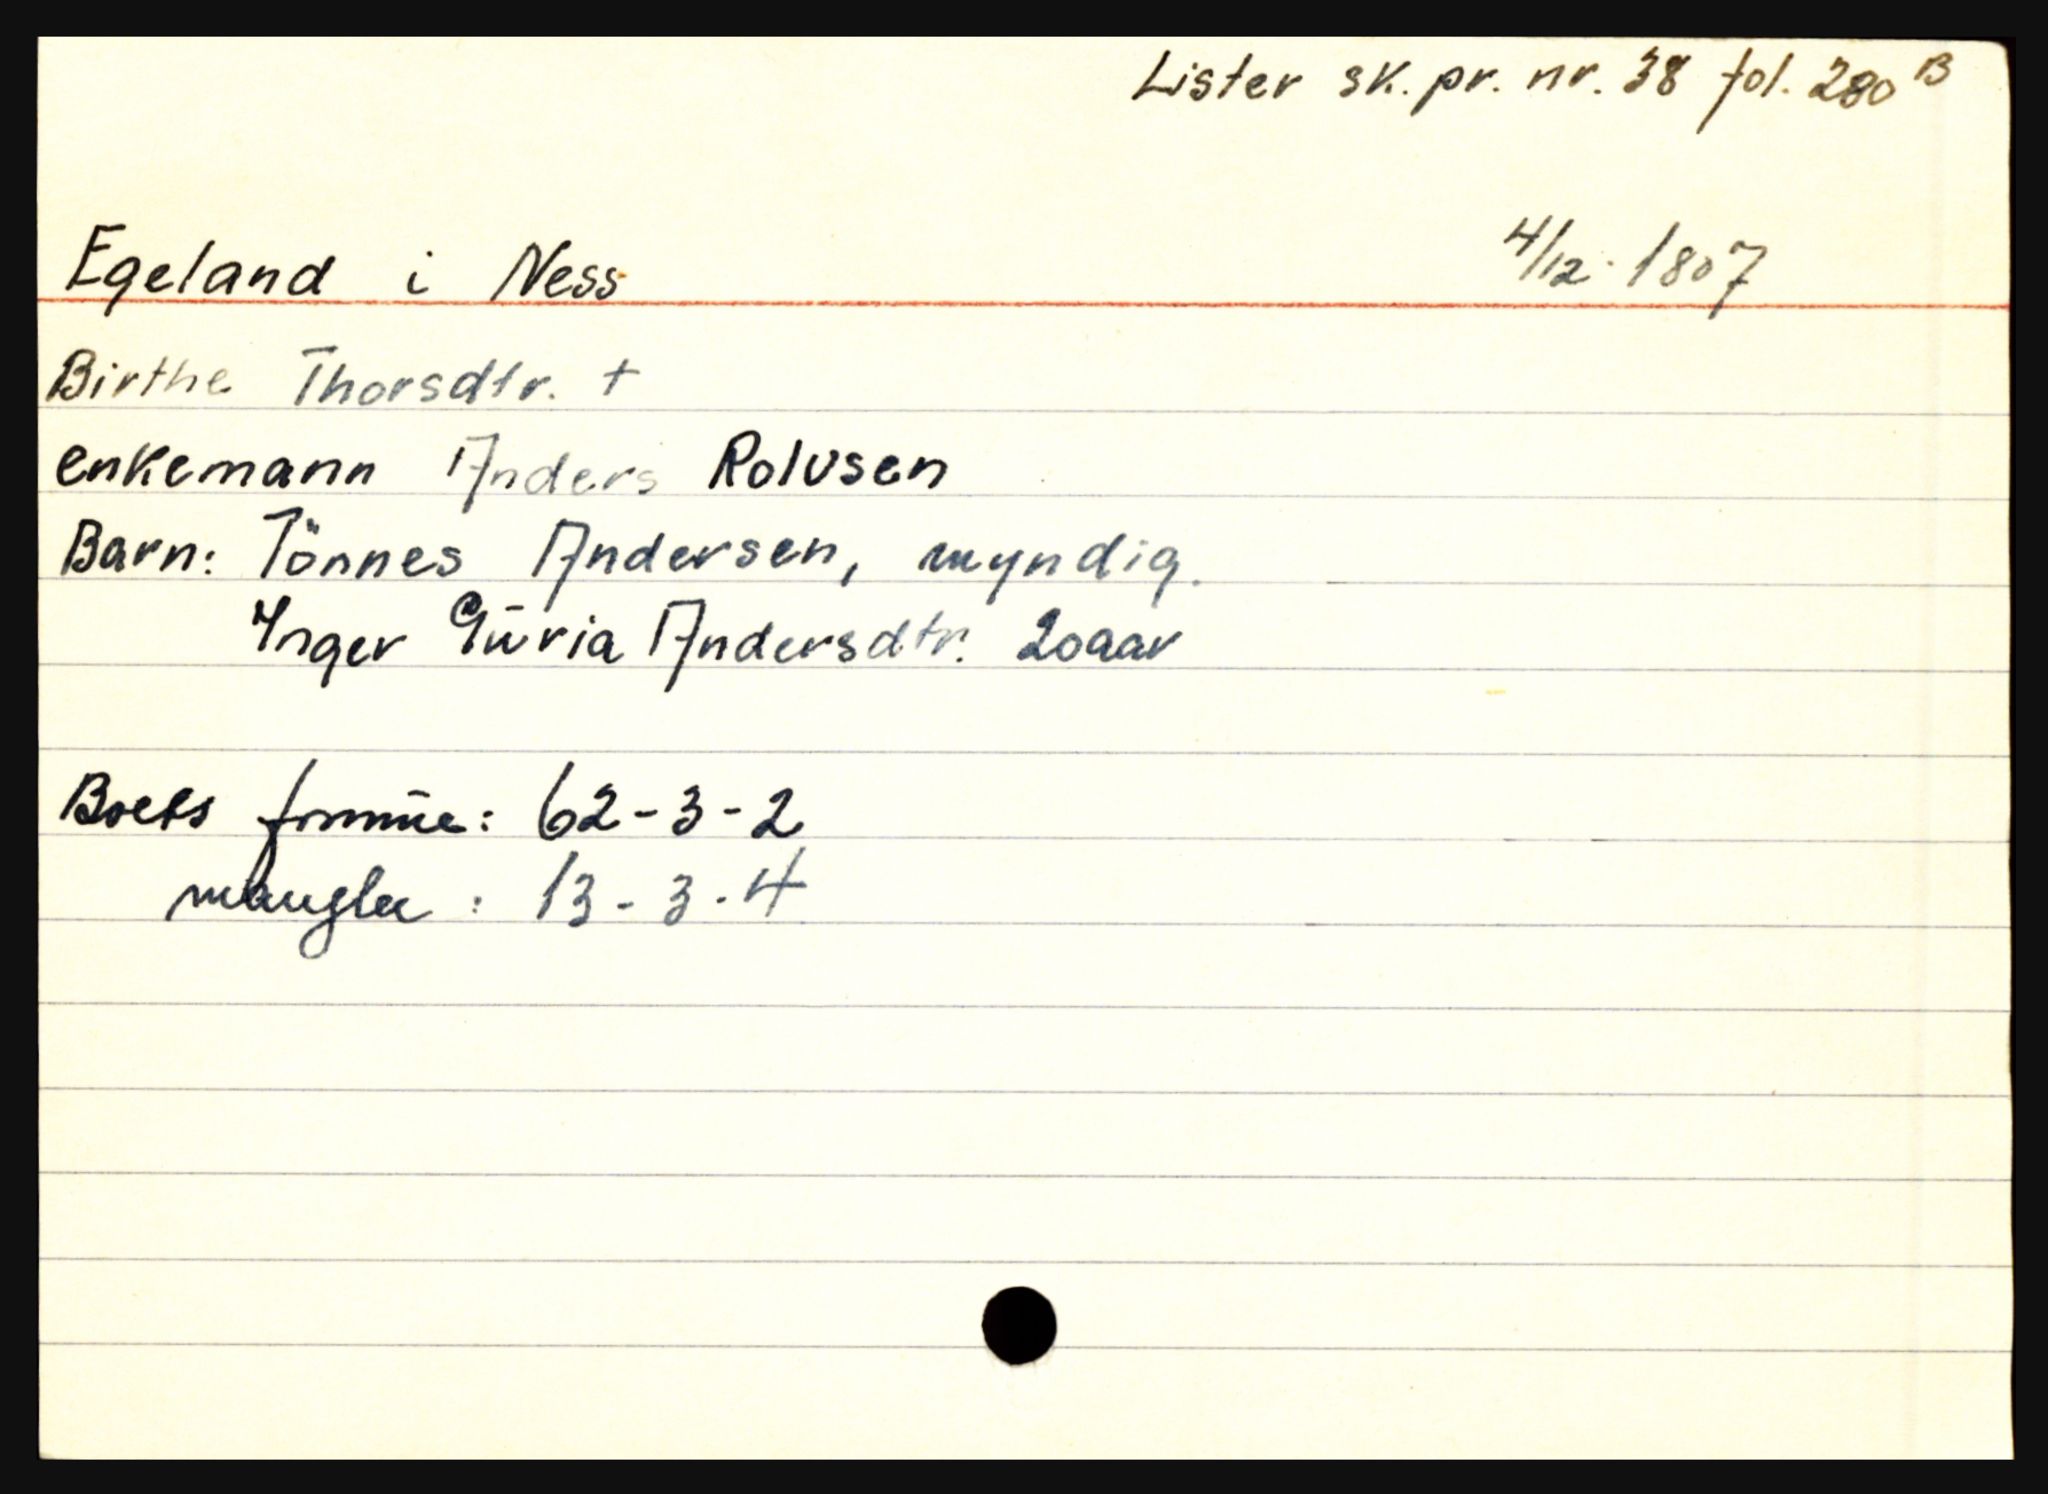 Lister sk. pr. nr. 38 fol. 280 B
Egeland i Ness 4/12. 1807
Birthe Thorsdtr. +
enkemann Anders Rolvsen
Barn: Tönnes Andersen, myndig.
Inger Gūria Andersdtr. 20aar
Boets formūe: 62-3-2
mangler : 13-3-4